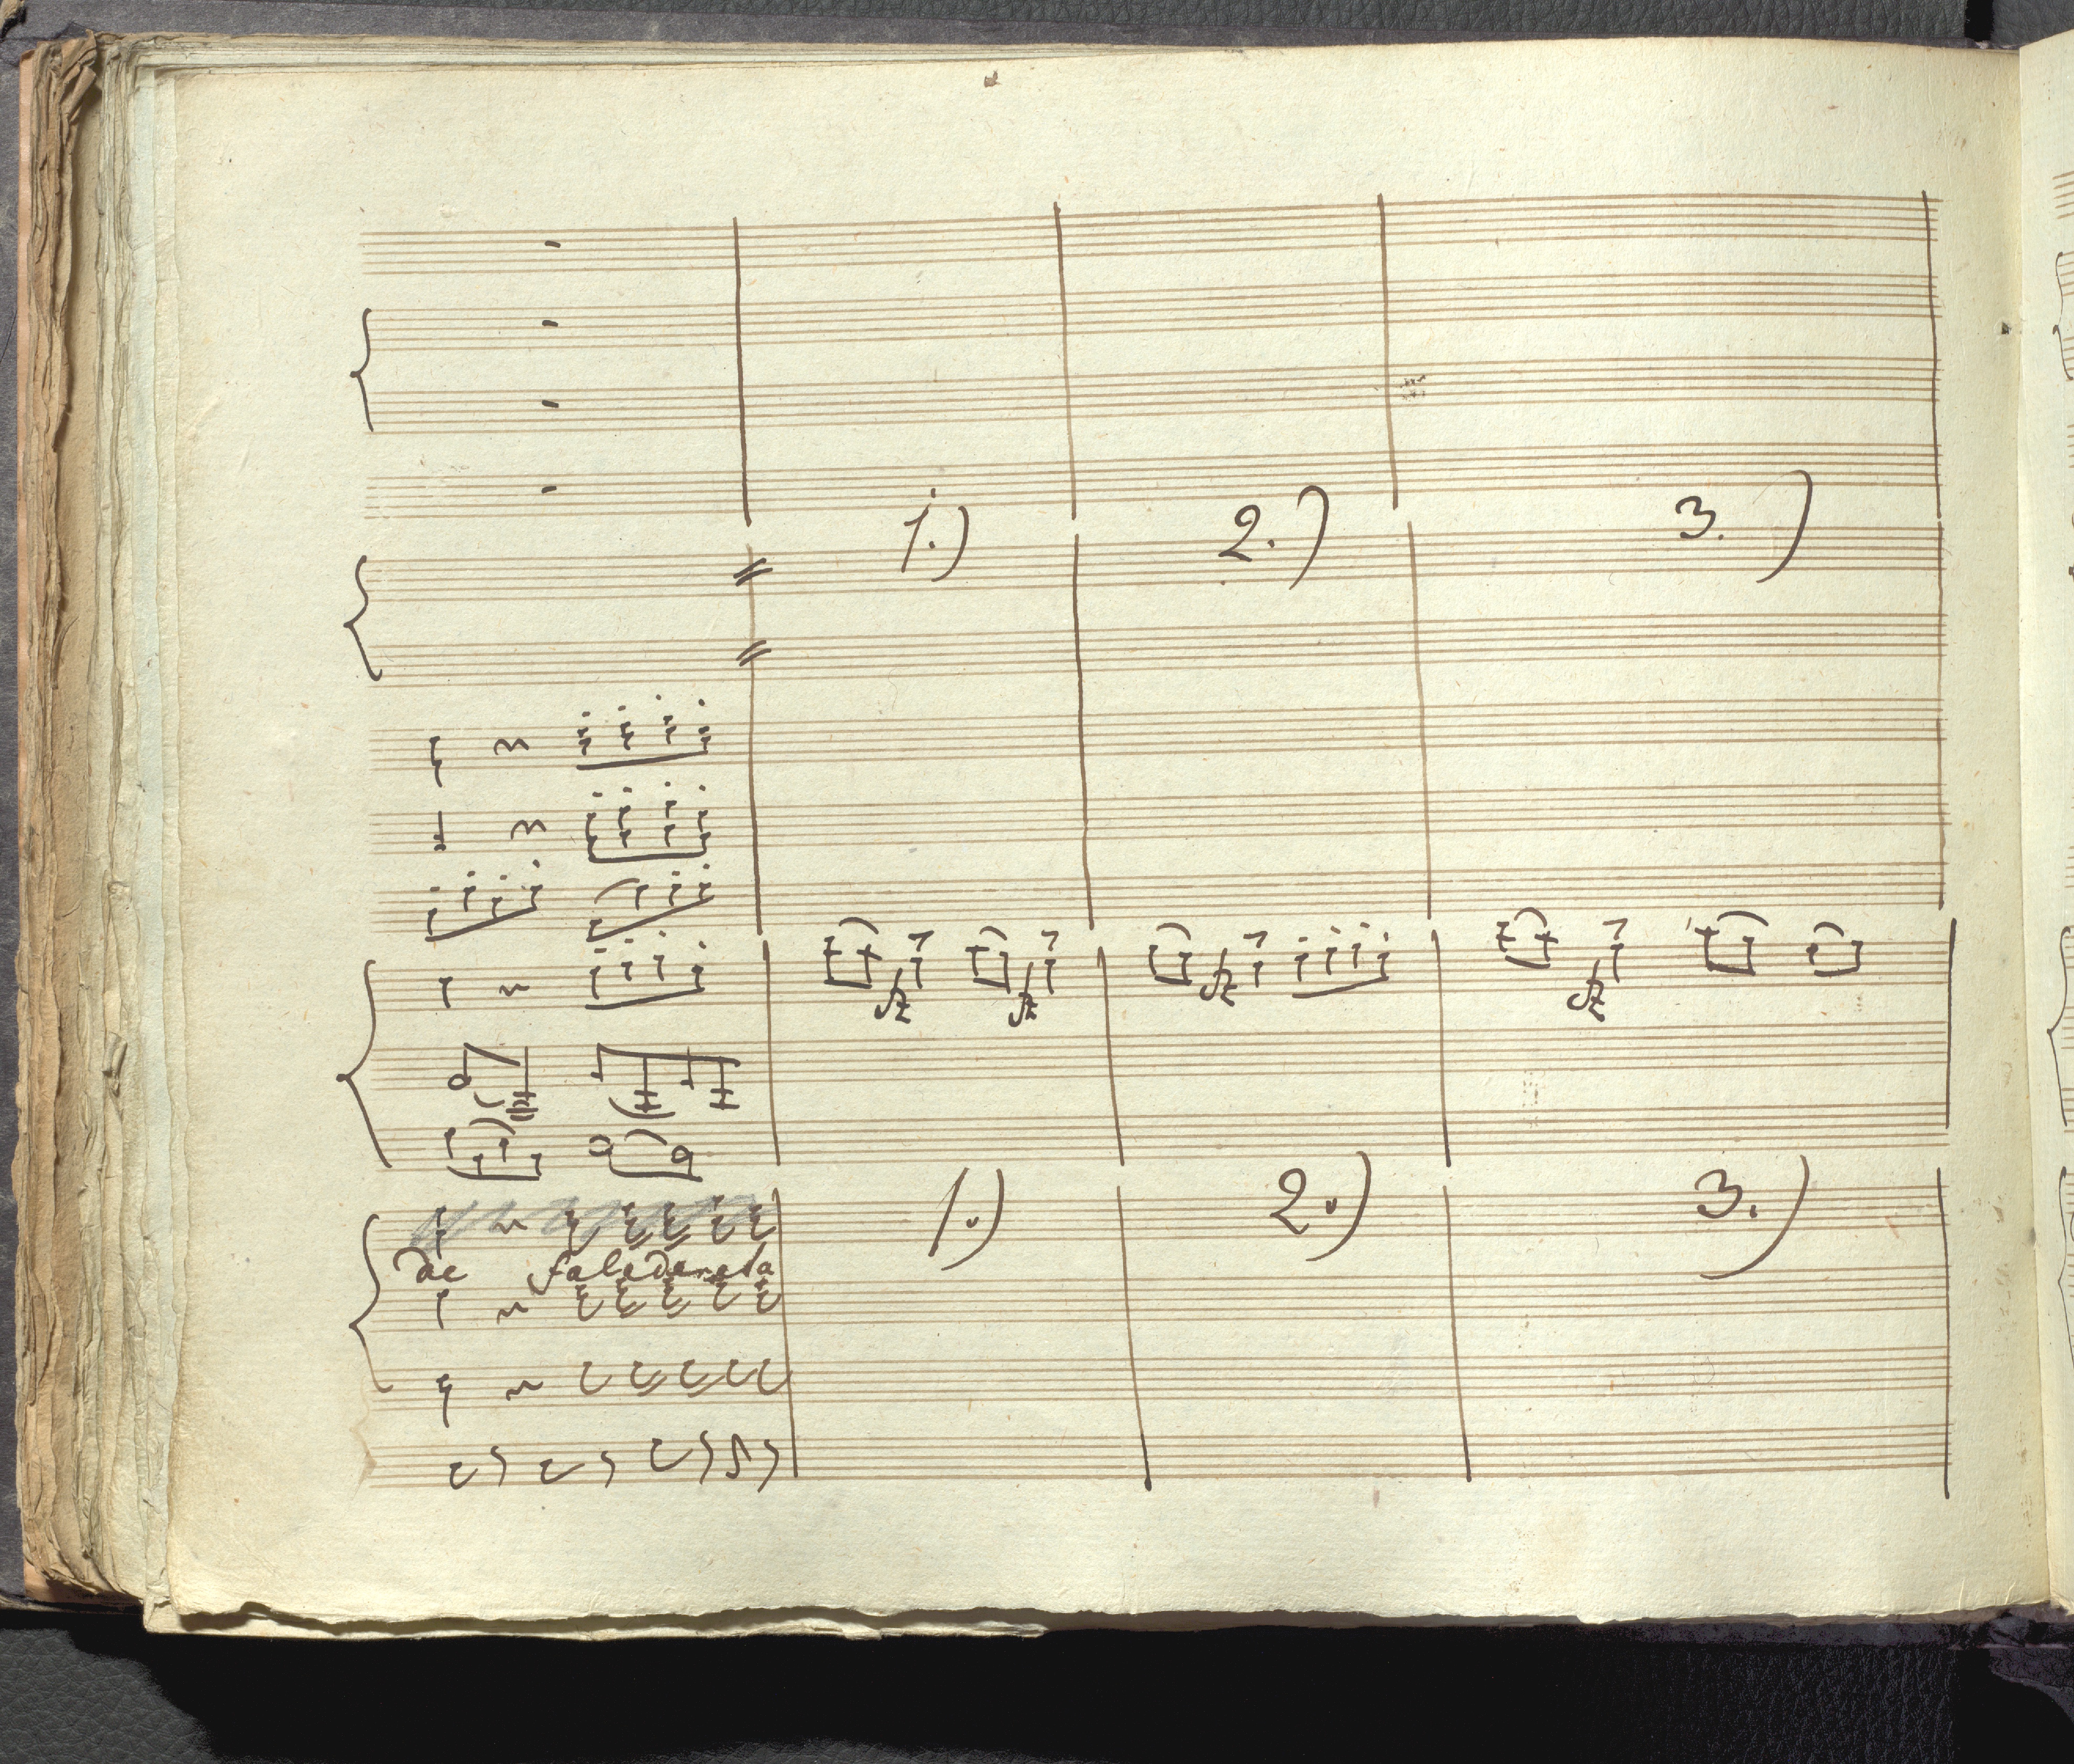 1.) 2.) 3.)
fz fz fz fz
1.) 2.) 3.)
de faladerala